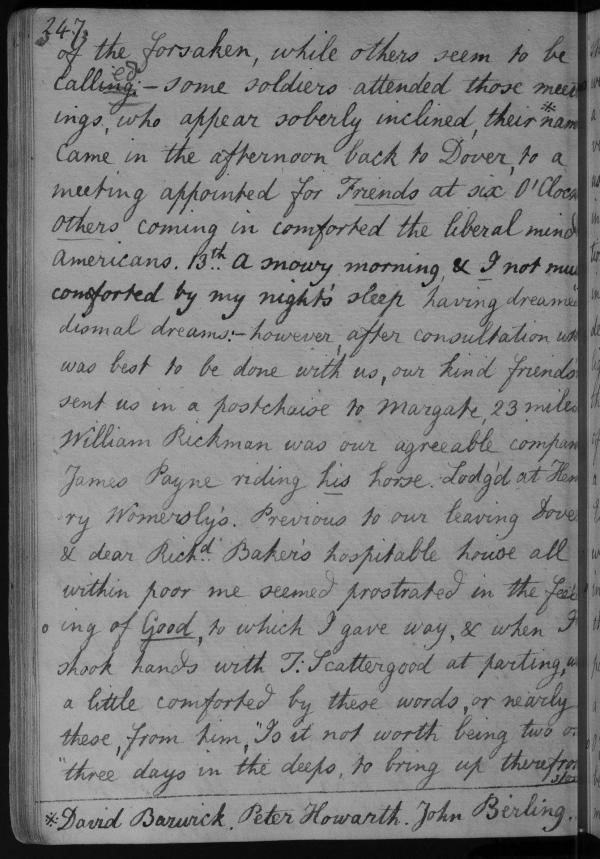 247,
of the forsaken, while others seem to be
ed
calling:- some soldiers attended those meet
ings, who appear soberly inclined, their * nam
Came in the afternoon back to Dover, to a
meeting appointed for Friends at six O'Cloc
others coming in comforted the liberal mind
Americans. 13th. A snowy morning, & I not muc
comforted by my night's sleep having dreamed
dismal dreams:- however, after consultation w
was best to be done with us, our kind friends
sent us in a postchaise to Margate, 23 miles
William Rickman was our agreeable compan
James Payne riding his horse. Lodg'd at Hen
ry Womersly's. Previous to our leaving Dove
& dear Richd. Baker's hospitable house all
within poor me seemed prostrated in the feel
ing of Good, to which I gave way, & when I
shook hands with T: Scattergood at parting,
a little comforted by these words, or nearly
these, from him, "Is it not worth being two or
"three days in the deeps, to bring up therefrom
* David Barwick. Peter Howarth. John Berling.